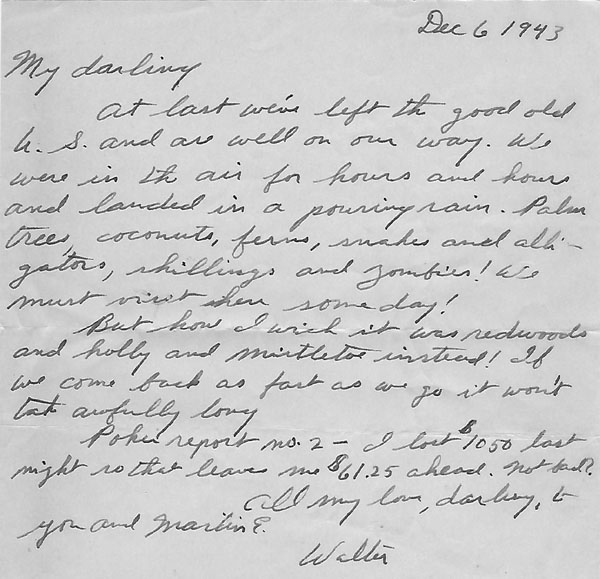 Dec 6 1943
My darling
At last we've left the good old
U. S. and are well on our way. We
were in the air for hours and hours
and landed in a pouring rain. Palm
trees, coconuts, ferns, snakes and alli-
gators, shillings and zombies! We
must visit here some day!
But how I wish it was redwoods
and holly and mistletoe instead! If
we come back as fast as we go it won't
take awfully long
Poker report no. 2 - I lost $10.50 last
night so that leaves me $61.25 ahead. Not bad?
All my love, darling, to
you and Martin E.
Walter